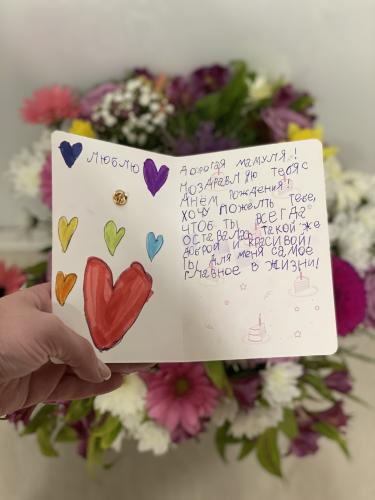 Люблю
Дорогая мамуля!
Поздравляю тебя с
Днём рождения!
Хочу пожелть тебе,
чтоб ты всегда
оставалась такой же
доброй и красивой!
Ты для меня самое
главное в жизни!